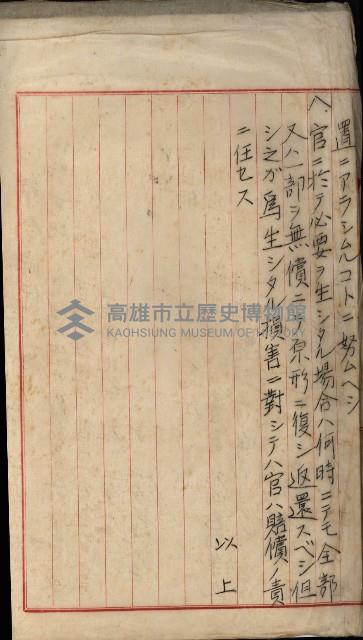 置ニアラシムルコトニ努ムヘシ
ヘ、官ニ於テ必要ヲ生シタル場合ハ何時ニテモ全部
又ハ一部ヲ無償ニテ原形ニ復シ返還スベシ但
シ之ガ為生シタル損害ニ對シテハ官ハ賠償ノ責
ニ任セス
以上
高雄市立歷史博物館
KAOHSIUNG MUSEUM OF HISTORY